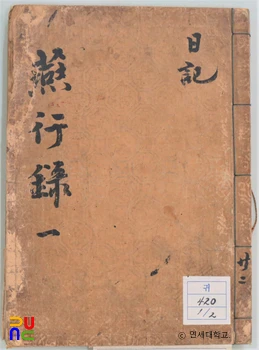 日記
燕行錄 一
廿二
귀
420
1/2
연세대학교